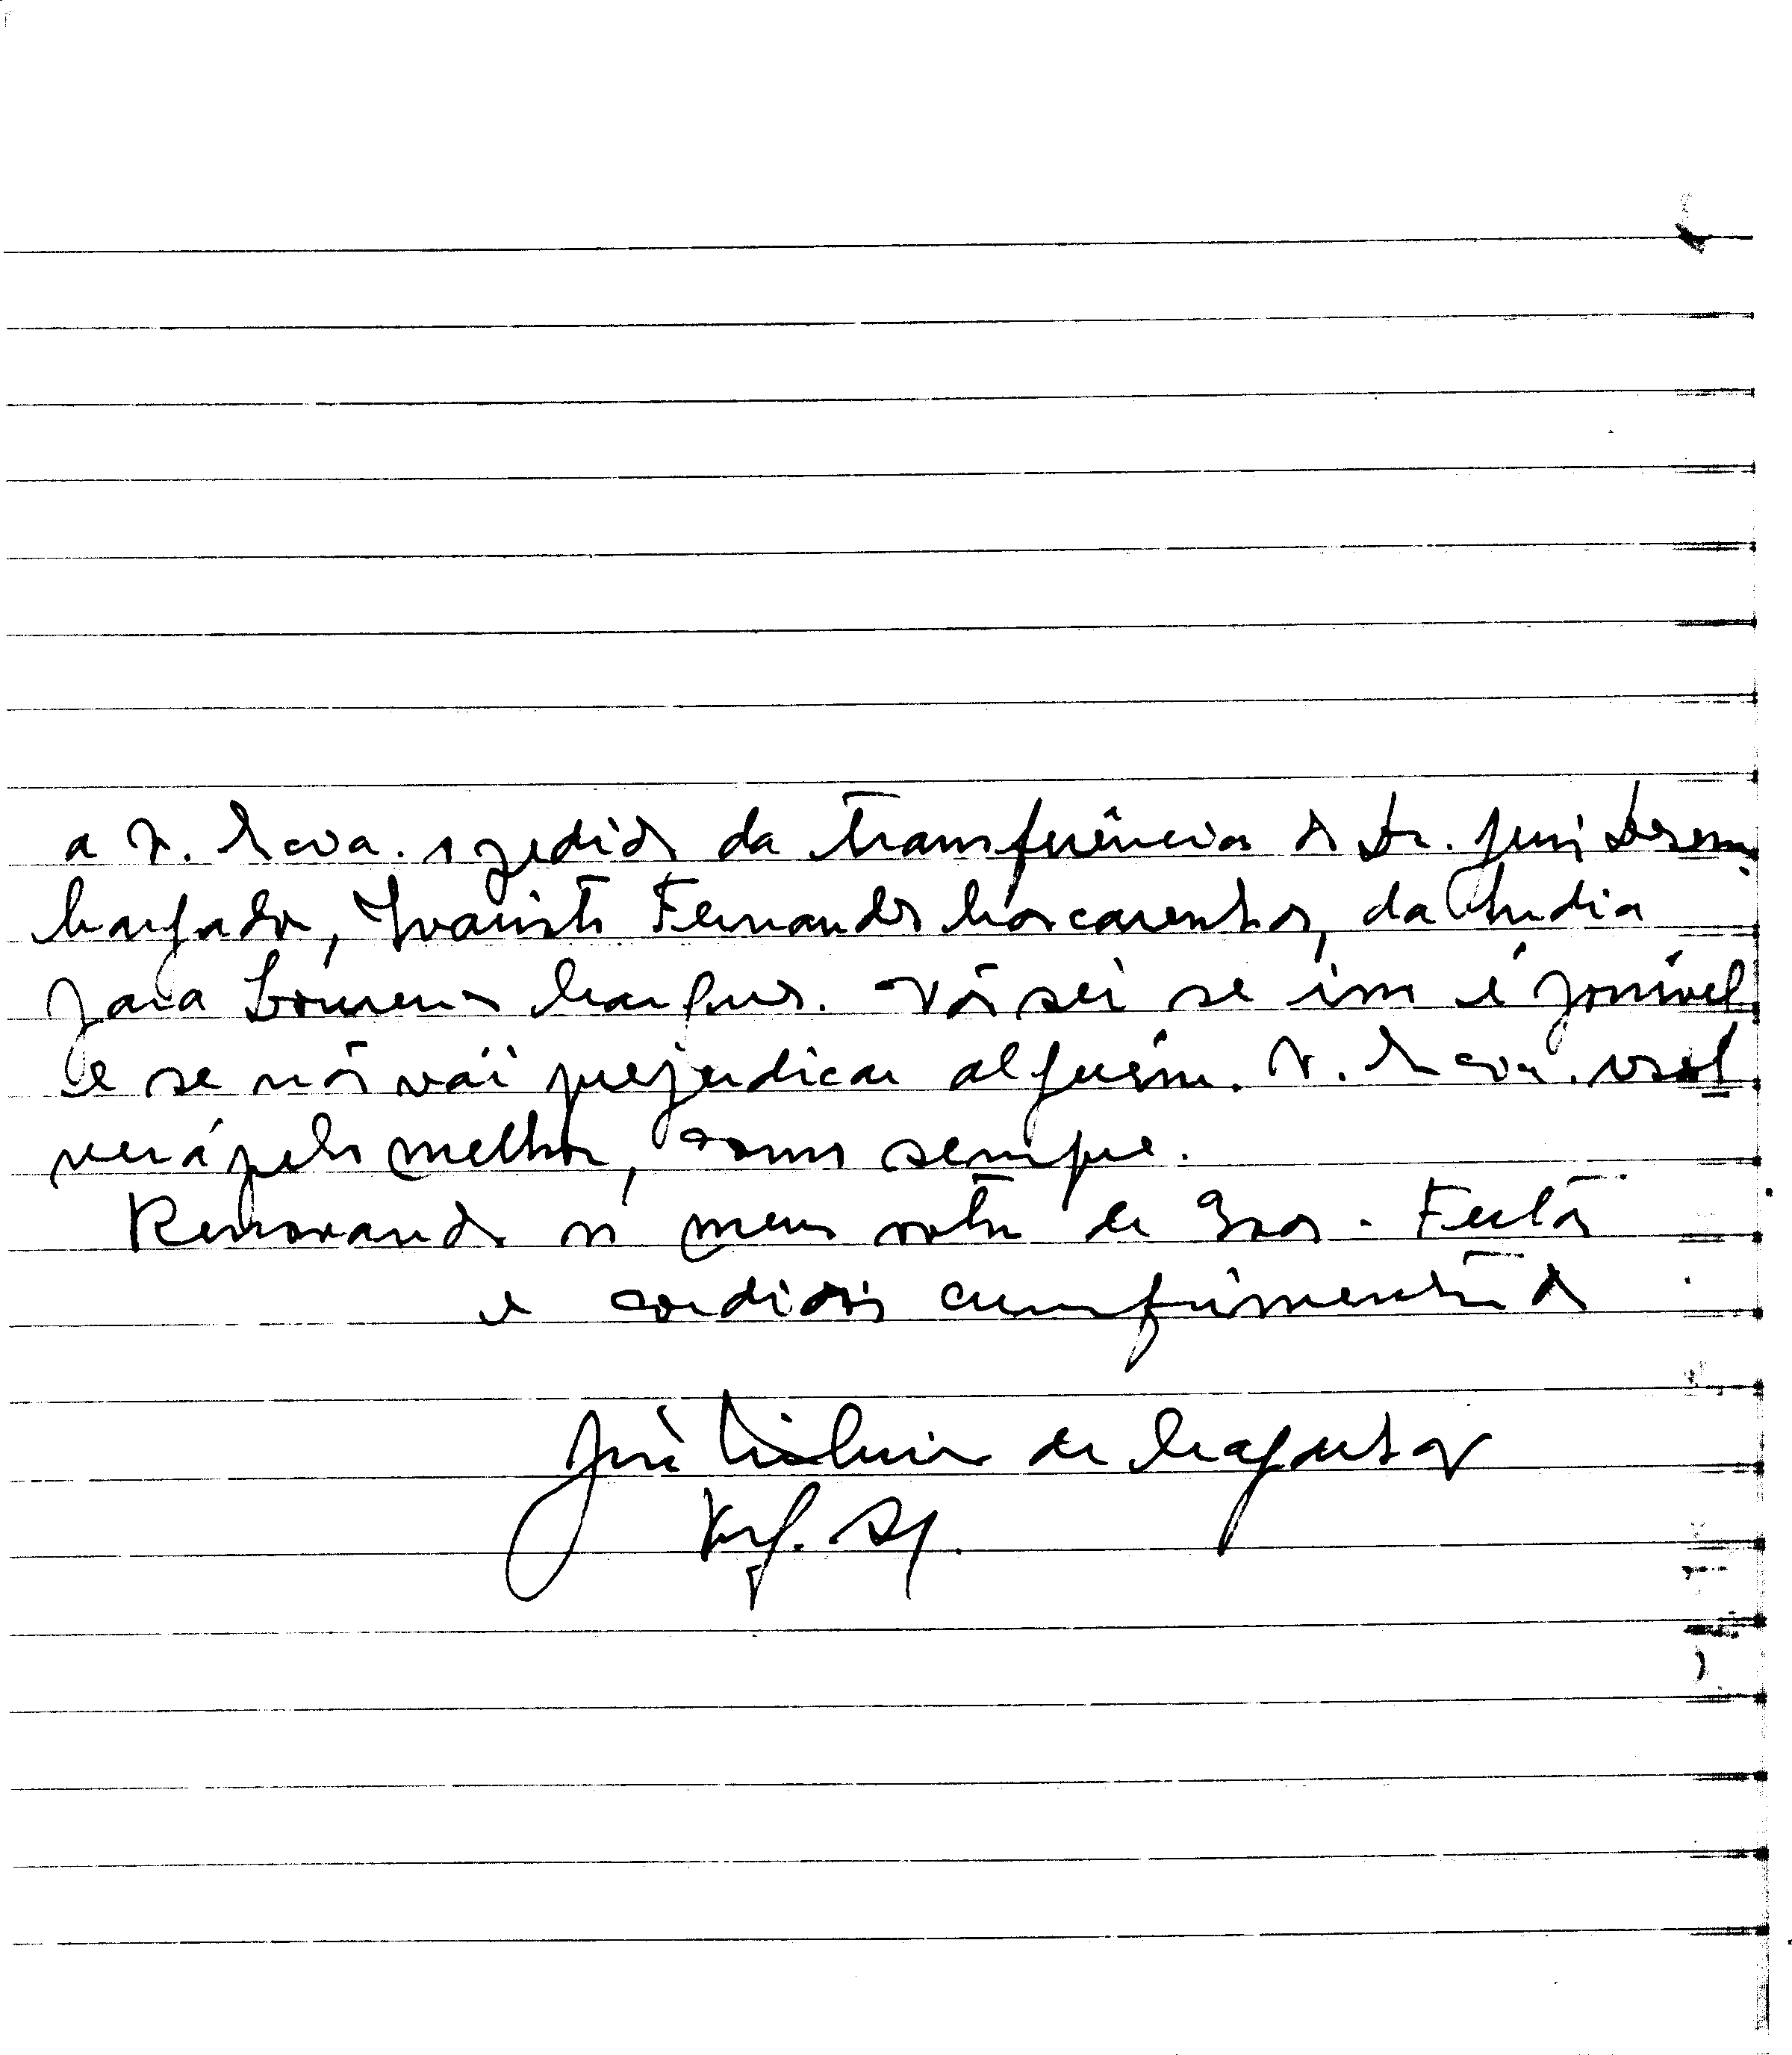 a V. Exa. o pedido da transferência do Dr. Juiz Desem-
bargador, Evaristo Fernandes Mascarenhas, da India
para Lourenço Marques. Não sei se isso é possível
e se não vai prejudicar alguém. V. Excia. resol
verá pelo melhor, como sempre.
Renovando os meus votos de Boas-Festas
e cordiais cumprimentos do
José de Magalhães